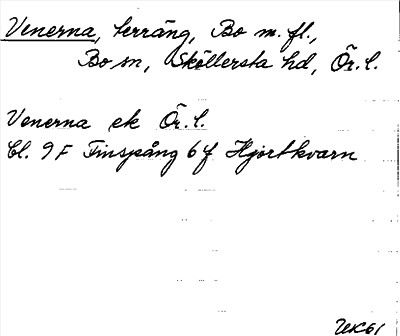 Venerna, terräng, Bo m. fl.,
Bo sn, Sköllersta hd, Ör. l.
Venerna ek Ör. l.
Bl. 9F Finspång 6f Hjortkvarn
UK61